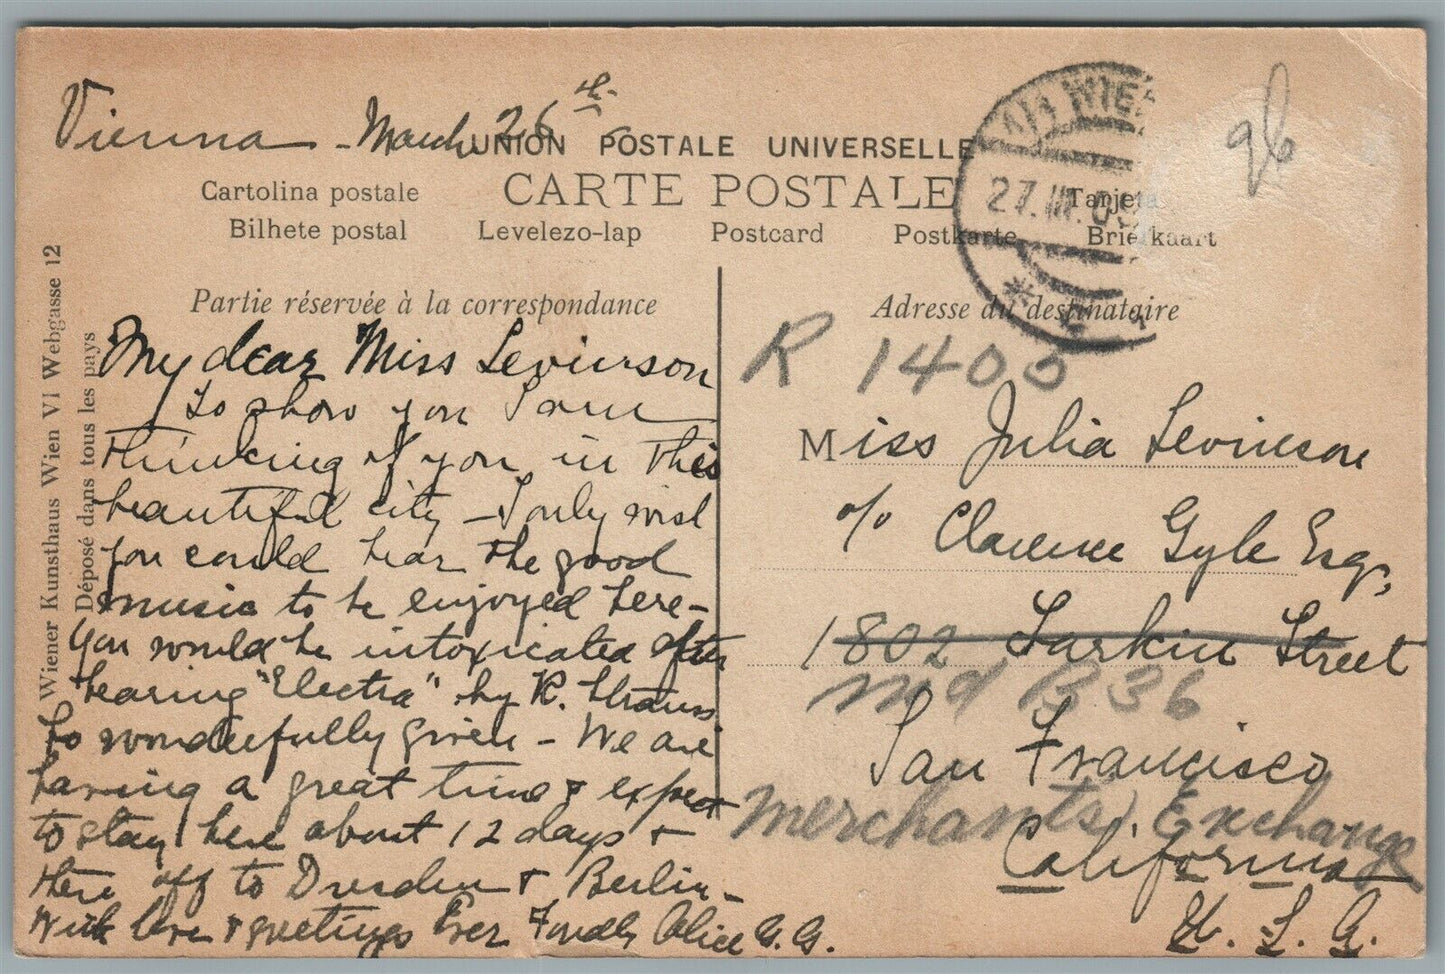 Vienna - March 26th
UNION POSTALE UNIVERSELLE
CARTE POSTALE
Cartolina postale
Tarjeta
Bilhete postal Levelezo-lap Postcard Postkarte Briefkaart
WIEN
27.III.09
96
Wiener Kunsthaus Wien VI Webgasse 12
Déposé dans tous les pays
Partie réservée à la correspondance
My dear Miss Levinson
To show you I am
thinking of you in this
beautiful city - I only wish
you could hear the good
music to be enjoyed here -
You would be intoxicated after
hearing "Electra" by R. Strauss
so wonderfully given - We are
having a great time & expect
to stay here about 12 days &
then off to Dresden & Berlin -
With love & greetings Ever Fondly Alice G. G.
Adresse du destinataire
R 1400
Miss Julia Levinson
c/o Clarence Gyle Esq,
1802 Larkin Street
Md B 36
San Francisco
Merchants Exchange
California
U. S. A.